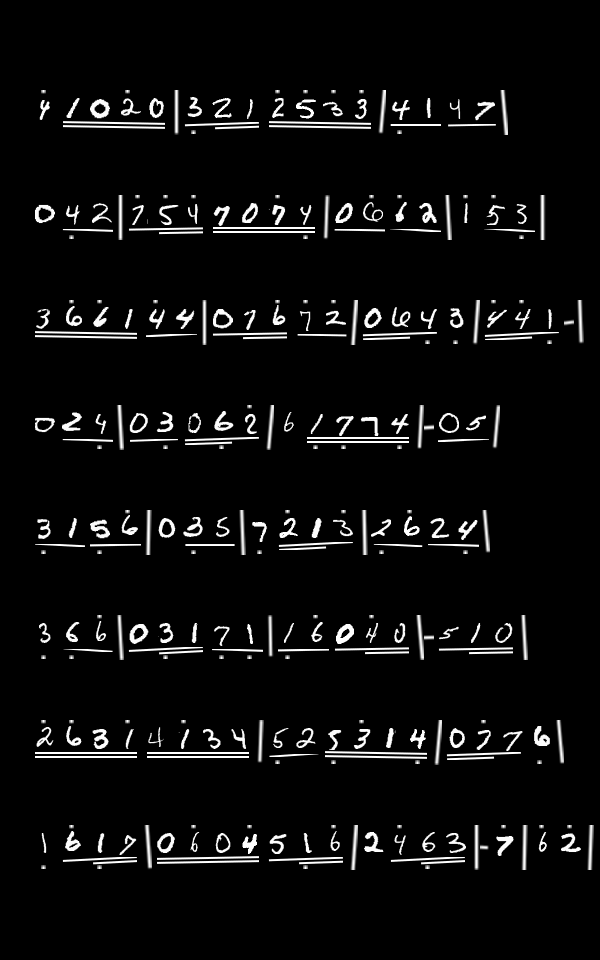 4 1 0 2 0 | 3 2 1 2 5 3 3 | 4 1 4 7 |
0 4 2 | 7 5 4 7 0 7 4 | 0 6 6 2 | 1 5 3 |
3 6 6 1 4 4 | 0 7 6 7 2 | 0 6 4 3 | 4 4 1 - |
0 2 4 | 0 3 0 6 2 | 6 1 7 7 4 | - 0 5 |
3 1 5 6 | 0 3 5 | 7 2 1 3 | 2 6 2 4 |
3 6 6 | 0 3 1 7 1 | 1 6 0 4 0 | - 5 1 0 |
2 6 3 1 4 1 3 4 | 5 2 5 3 1 4 | 0 7 7 6 |
1 6 1 7 | 0 6 0 4 5 1 6 | 2 4 6 3 | - 7 | 6 2 |